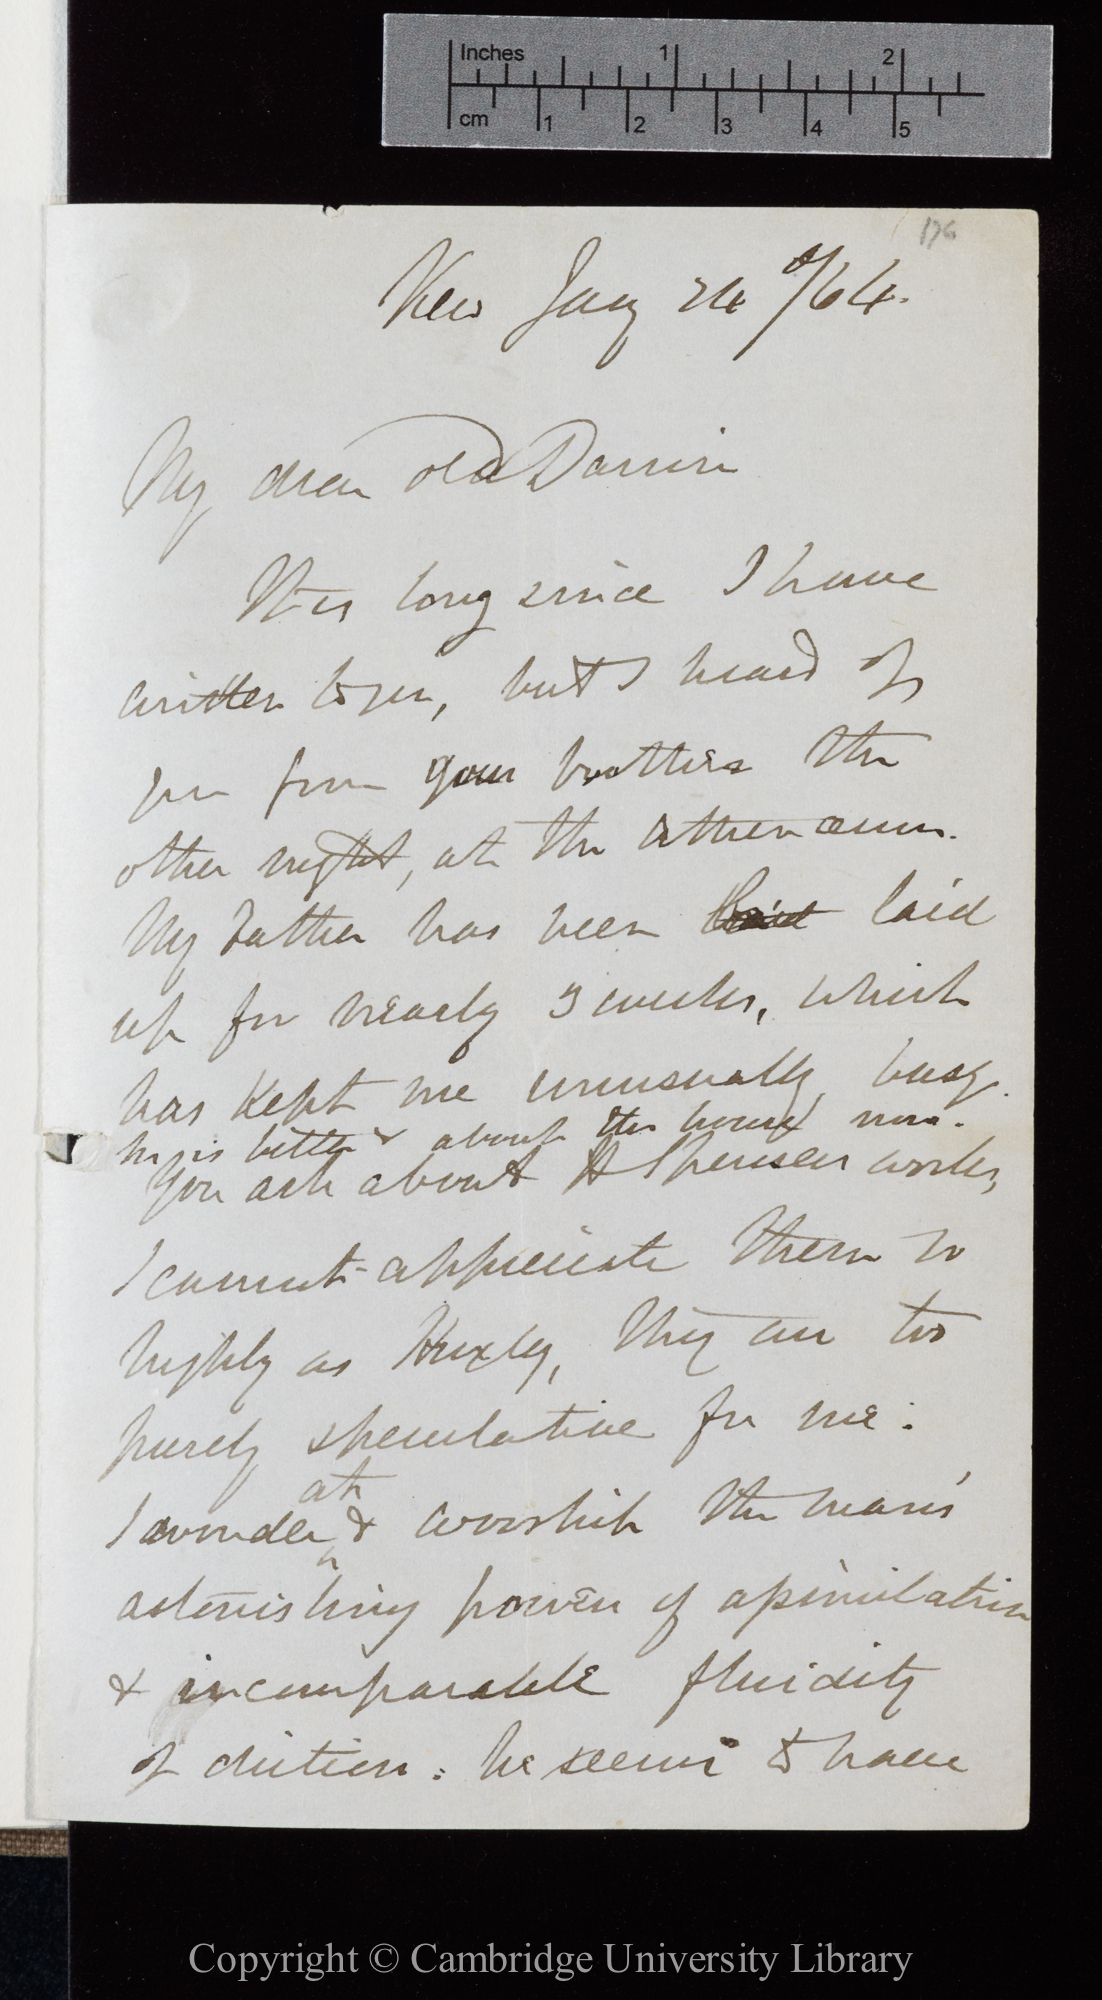 Inches 1 2
cm 1 2 3 4 5
176
Kew Jany 24th/64.
My dear old Darwin
It is long since I have
written to you, but I heard of
you from your brother the
other night, at the Athenæum.
My Father has been laid
up for nearly 3 weeks, which
has kept me unusually busy.
he is better & about the house now.
You ask about H Spenser works,
I cannot appreciate them so
highly as Huxley, they are too
purely speculative for me:
at
I wonder & worship the man's
astonishing power of assimilation
& incomparable fluidity
of diction: he seems to have
Copyright © Cambridge University Library